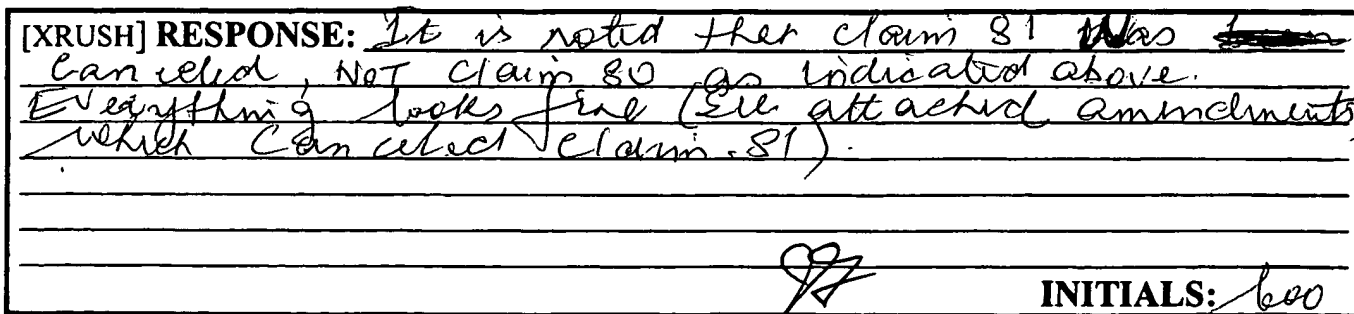 [XRUSH] RESPONSE: It is noted that claim 81 was
Canceled, NOT claim 80 as indicated above.
Everything looks fine (See attached amendments
which Canceled claim 81).
INITIALS: